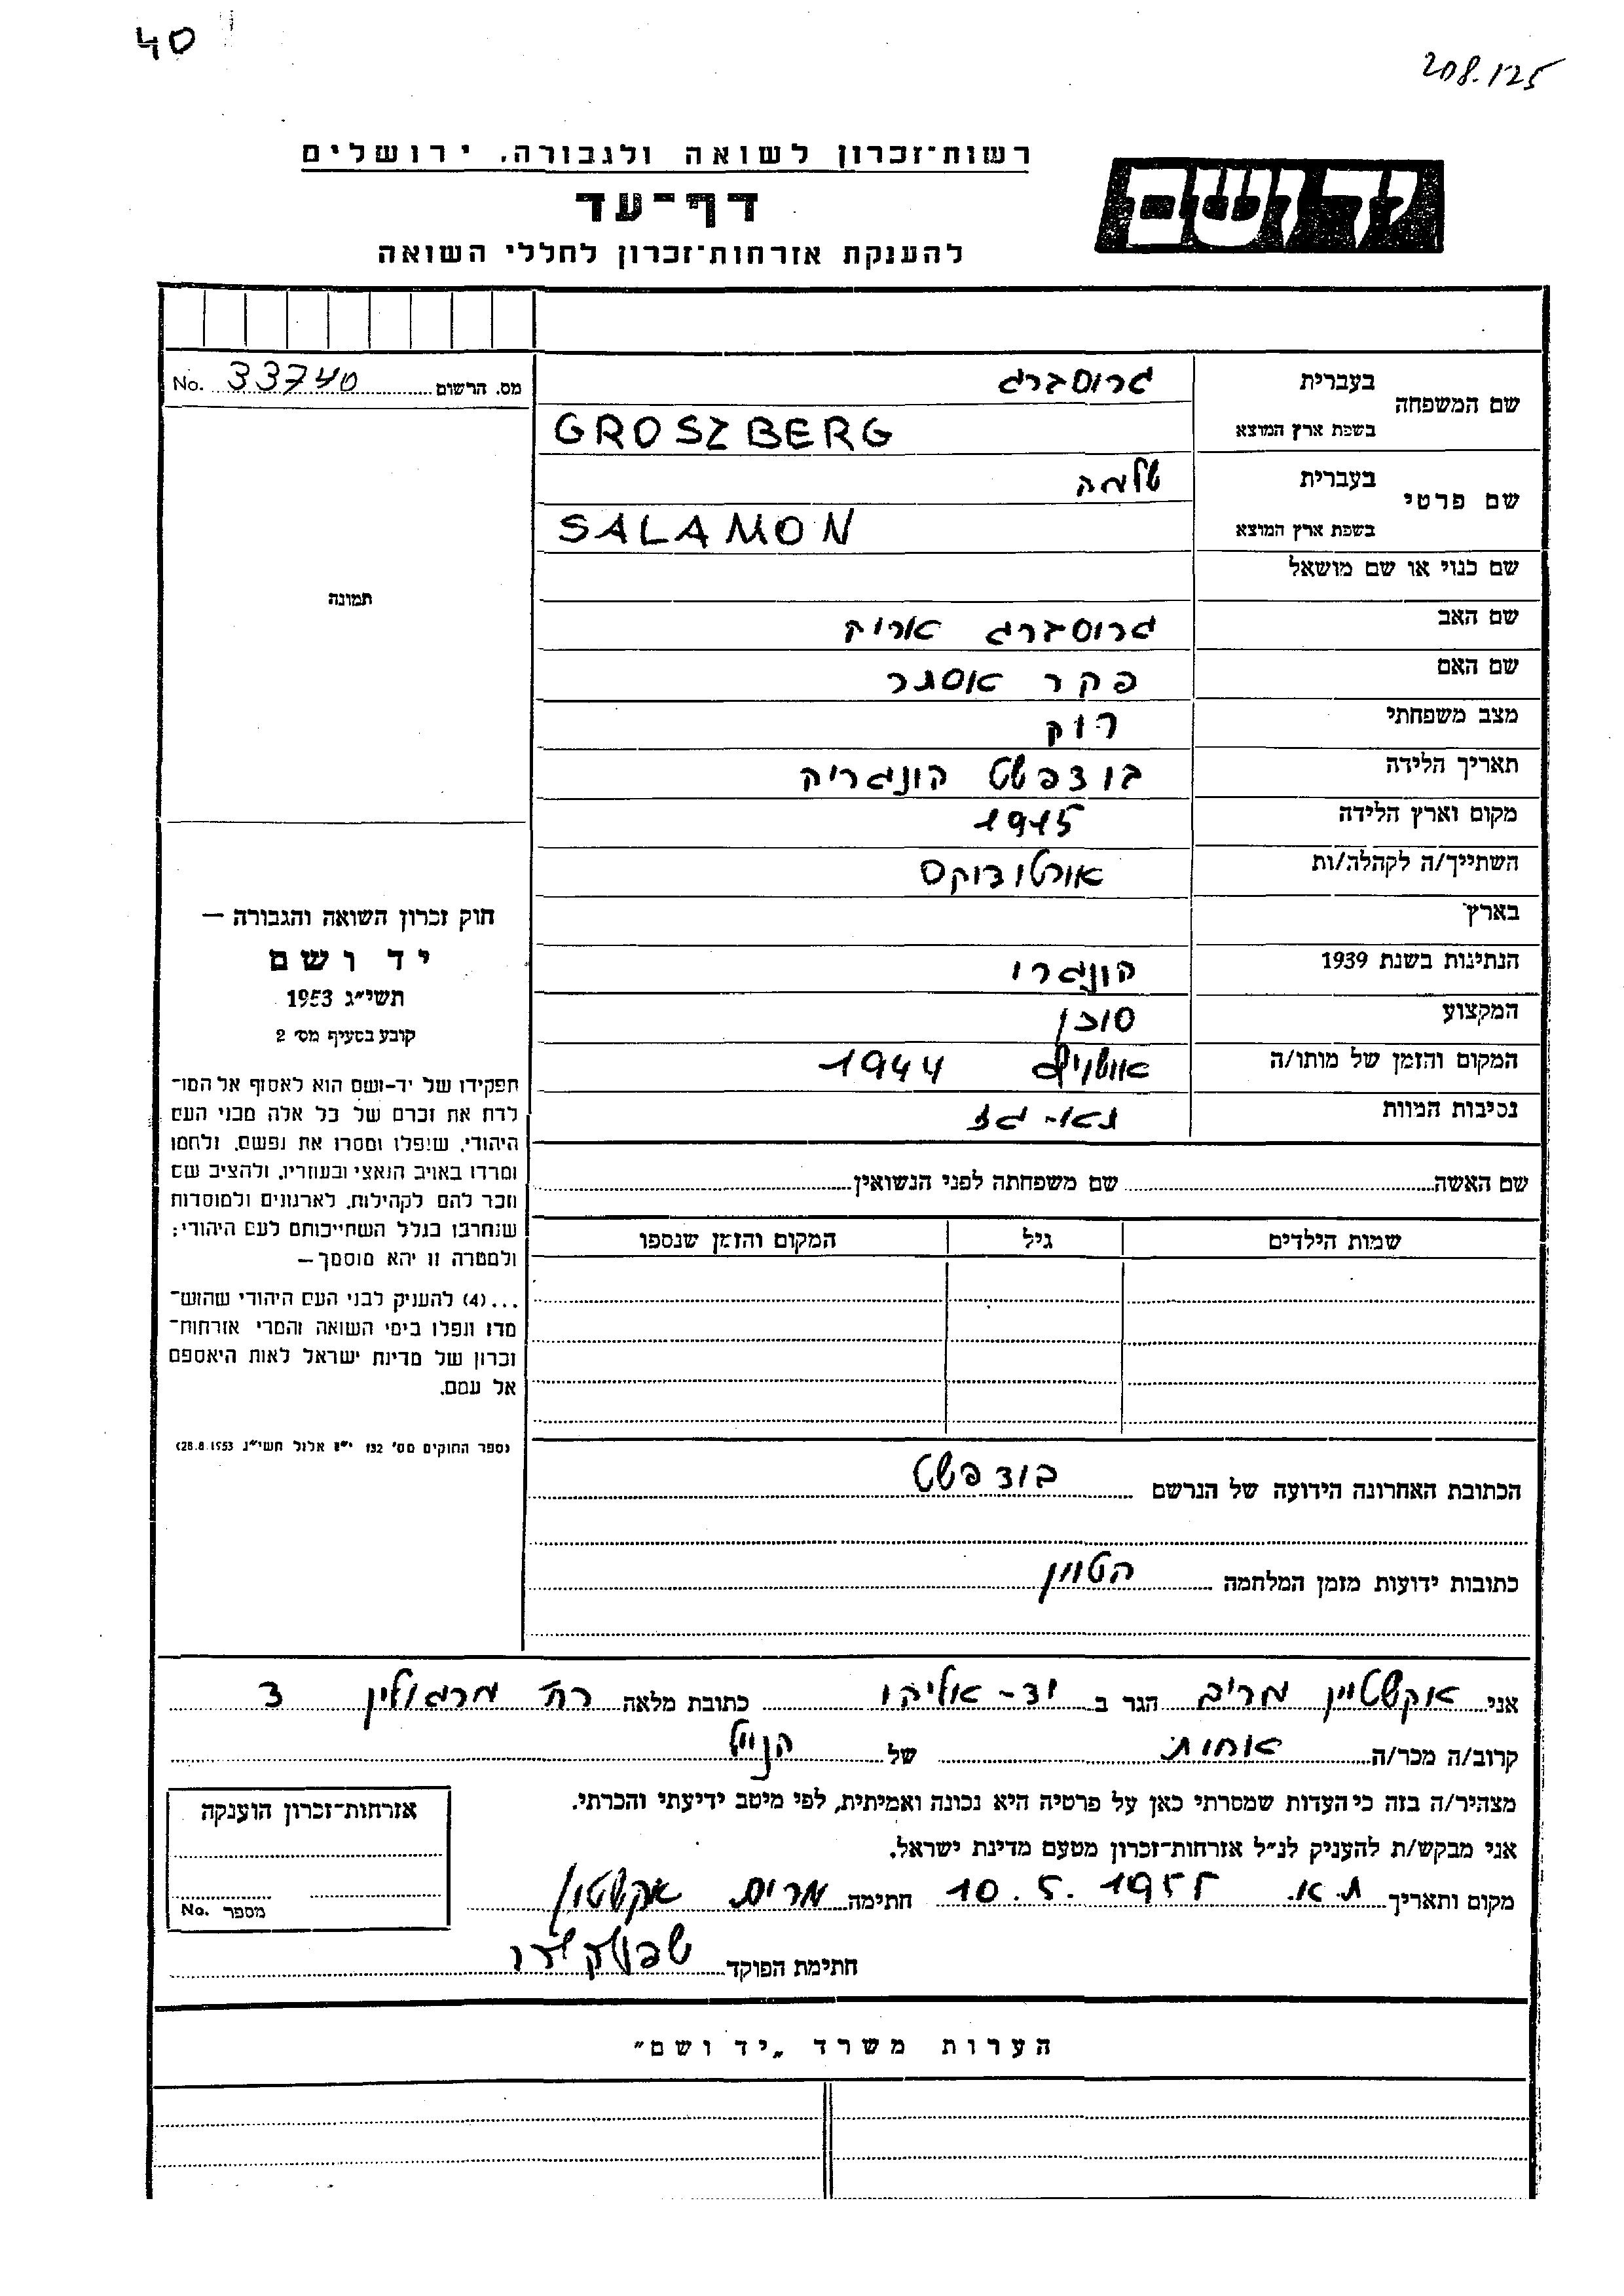 40
208.125
רשות-זכרון לשואה ולגבורה, ירושלים
יד ושם
דף-עד
להענקת אזרחות-זכרון לחללי השואה
מס. הרשום 33740 No.
שם המשפחה
בעברית גרוסברג
בשפת ארץ המוצא GROSZBERG
שם פרטי
בעברית שלמה
בשפת ארץ המוצא SALAMON
תמונה
שם כנוי או שם מושאל
שם האב גרוסברג
שם האם פקר אסתר
מצב משפחתי רוק
תאריך הלידה בודפשט הונגריה
מקום וארץ הלידה 1915
השתייך/ה לקהלה/ות אורטודוקס
בארץ
הנתינות בשנת 1939 הונגרי
המקצוע סוכן
המקום והזמן של מותו/ה אושויץ 1944
נסיבות המוות תא-גז
חוק זכרון השואה והגבורה —
יד ושם
תשי״ג 1953
קובע בסעיף מס׳ 2
תפקידו של יד-ושם הוא לאסוף אל המו־
לדת את זכרם של כל אלה מבני העם
היהודי, שנפלו ומסרו את נפשם, נלחמו
ומרדו באויב הנאצי ובעוזריו, ולהציב שם
וזכר להם לקהילות, לארגונים ולמוסדות
שנחרבו בגלל השתייכותם לעם היהודי;
ולמטרה זו יהא מוסמך—
...(4) להעניק לבני העם היהודי שהוש־
מדו ונפלו בימי השואה והמרי אזרחות־
זכרון של מדינת ישראל לאות היאספם
אל עמם.
(ספר החוקים מס׳ 132 י״ז אלול תשי״ג 28.8.1953)
שם האשה שם משפחתה לפני הנשואין
שמות הילדים גיל המקום והזמן שנספו
הכתובת האחרונה הידועה של הנרשם בודפשט
כתובות ידועות מזמן המלחמה הטווין
אני אקשטיין מרים הגר ב יד-אליהו כתובת מלאה רח׳ מרגולין 3
קרוב/ה מכר/ה אחות של הנ״ל
מצהיר/ה בזה כי העדות שמסרתי כאן על פרטיה היא נכונה ואמיתית, לפי מיטב ידיעתי והכרתי.
אני מבקש/ת להעניק לנ״ל אזרחות-זכרון מטעם מדינת ישראל.
מקום ותאריך ת.א. 10.5.1955 חתימה מרים אקשטיין
חתימת הפוקד
אזרחות-זכרון הוענקה
מספר No.
הערות משרד „יד ושם״